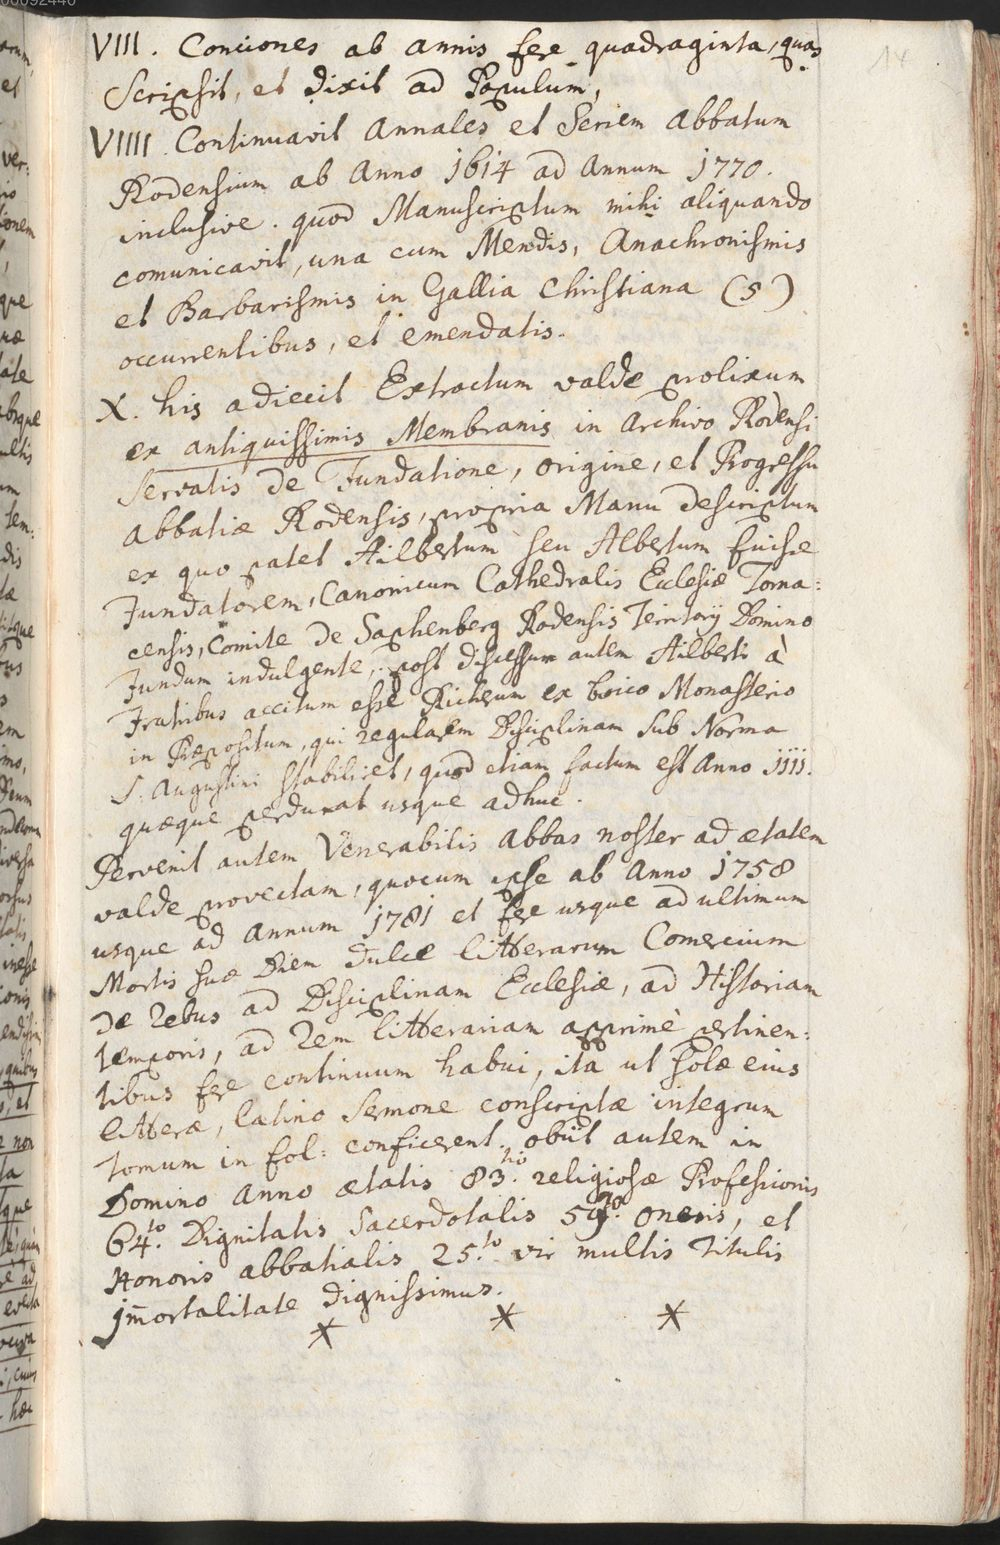 14
VIII. Conciones ab annis fere quadraginta, quas
Scripsit, et dixit ad Populum,
VIIII. Continuavit Annales et Seriem Abbatum
Rodensium ab Anno 1614 ad Annum 1770.
inclusive. quod Manuscriptum mihi aliquando
comunicavit, una cum Mendis, Anachronismis
et Barbarismis in Gallia Christiana (5)
occurrentibus, et emendatis.
X. his adiecit Extractum valde prolixum
ex antiquissimis Membranis in Archivo Rodensi
Servatis de Fundatione, origine, et Progressu
Abbatiæ Rodensis, propria Manu descriptum
ex quo patet Ailbertum seu Albertum fuisse
Fundatorem, Canonicum Cathedralis Ecclesiæ Torna:
censis, Comite de Saphenberg Rodensis Territorij Domino
Fundum indulgente, post discessum autem Ailberti à
Fratribus accitum esse Richerum ex boico Monasterio
in Præpositum, qui regularem Disciplinam sub Norma
S. Augustini stabiliret, quod etiam factum est Anno 1111.
quæque perdurat usque adhuc.
Pervenit autem Venerabilis Abbas noster ad ætatem
valde provectam, quocum ipse ab Anno 1758
usque ad Annum 1781 et fere usque ad ultimum
Mortis suæ Diem dulce litterarum Comercium
de rebus ad Disciplinam Ecclesiæ, ad Historiam
temporis, ad rem litterariam apprimè pertinen:
tibus fere continuum habui, ita ut solæ eius
litteræ, latino Sermone conscriptæ integrum
tomum in fol: conficerent. obiit autem in
Domino Anno ætatis 83.tio religiosæ Professionis
64.to Dignitatis Sacerdotalis 59.no oneris, et
Honoris abbatialis 25.to vir multis titulis
Jm̄ortalitate dignissimus.
* * *